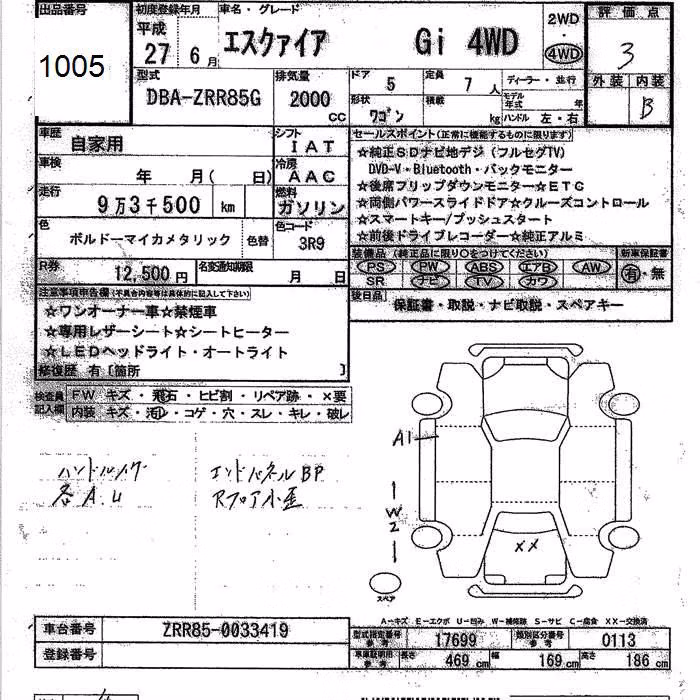 出品番号
1005
初度登録年月
平成
27 6月
車名・グレード
エスクァイア Gi 4WD
2WD
・
4WD
評価点
3
型式
DBA-ZRR85G
排気量
2000 cc
ドア 5
定員 7 人
ディーラー・並行
形状 ワゴン
積載 kg
モデル年式 年
ハンドル 左・右
外装 内装
B
車歴
自家用
シフト
IAT
車検
年 月( 日)
冷房
AAC
走行
9万3千500 km
燃料
ガソリン
色
ボルドーマイカメタリック
色替
色コード
3R9
R券
12,500円
名変通知期限
月 日
セールスポイント(正常に機能するものに限ります)
☆純正SDナビ地デジ(フルセグTV)
DVD-V・Bluetooth・バックモニター
☆後席フリップダウンモニター☆ETC
☆両側パワースライドドア☆クルーズコントロール
☆スマートキー/プッシュスタート
☆前後ドライブレコーダー☆純正アルミ
装備品(純正品に限り○をつけてください)
新車保証書
PS PW ABS エアB AW
SR ナビ TV カワ
有・無
後日品
保証書・取説・ナビ取説・スペアキー
注意事項申告欄(不具合内容等は具体的に記入して下さい)
☆ワンオーナー車☆禁煙車
☆専用レザーシート☆シートヒーター
☆LEDヘッドライト・オートライト
修復歴 有[箇所 ]
検査員
記入欄
FW キズ・飛石・ヒビ割・リペア跡・×要
内装 キズ・汚レ・コゲ・穴・スレ・キレ・破レ
各A.U
エンドパネルBP
Rフロア小歪
A1
W2
XX
スペア
A－キズ E－エクボ U－凹み W－補修跡 S－サビ C－腐食 XX－交換済
車台番号
ZRR85-0033419
登録番号
型式指定番号
参考
17699
類別区分番号
参考
0113
車庫証明用
参考
長さ 469 cm
幅 169 cm
高さ 186 cm